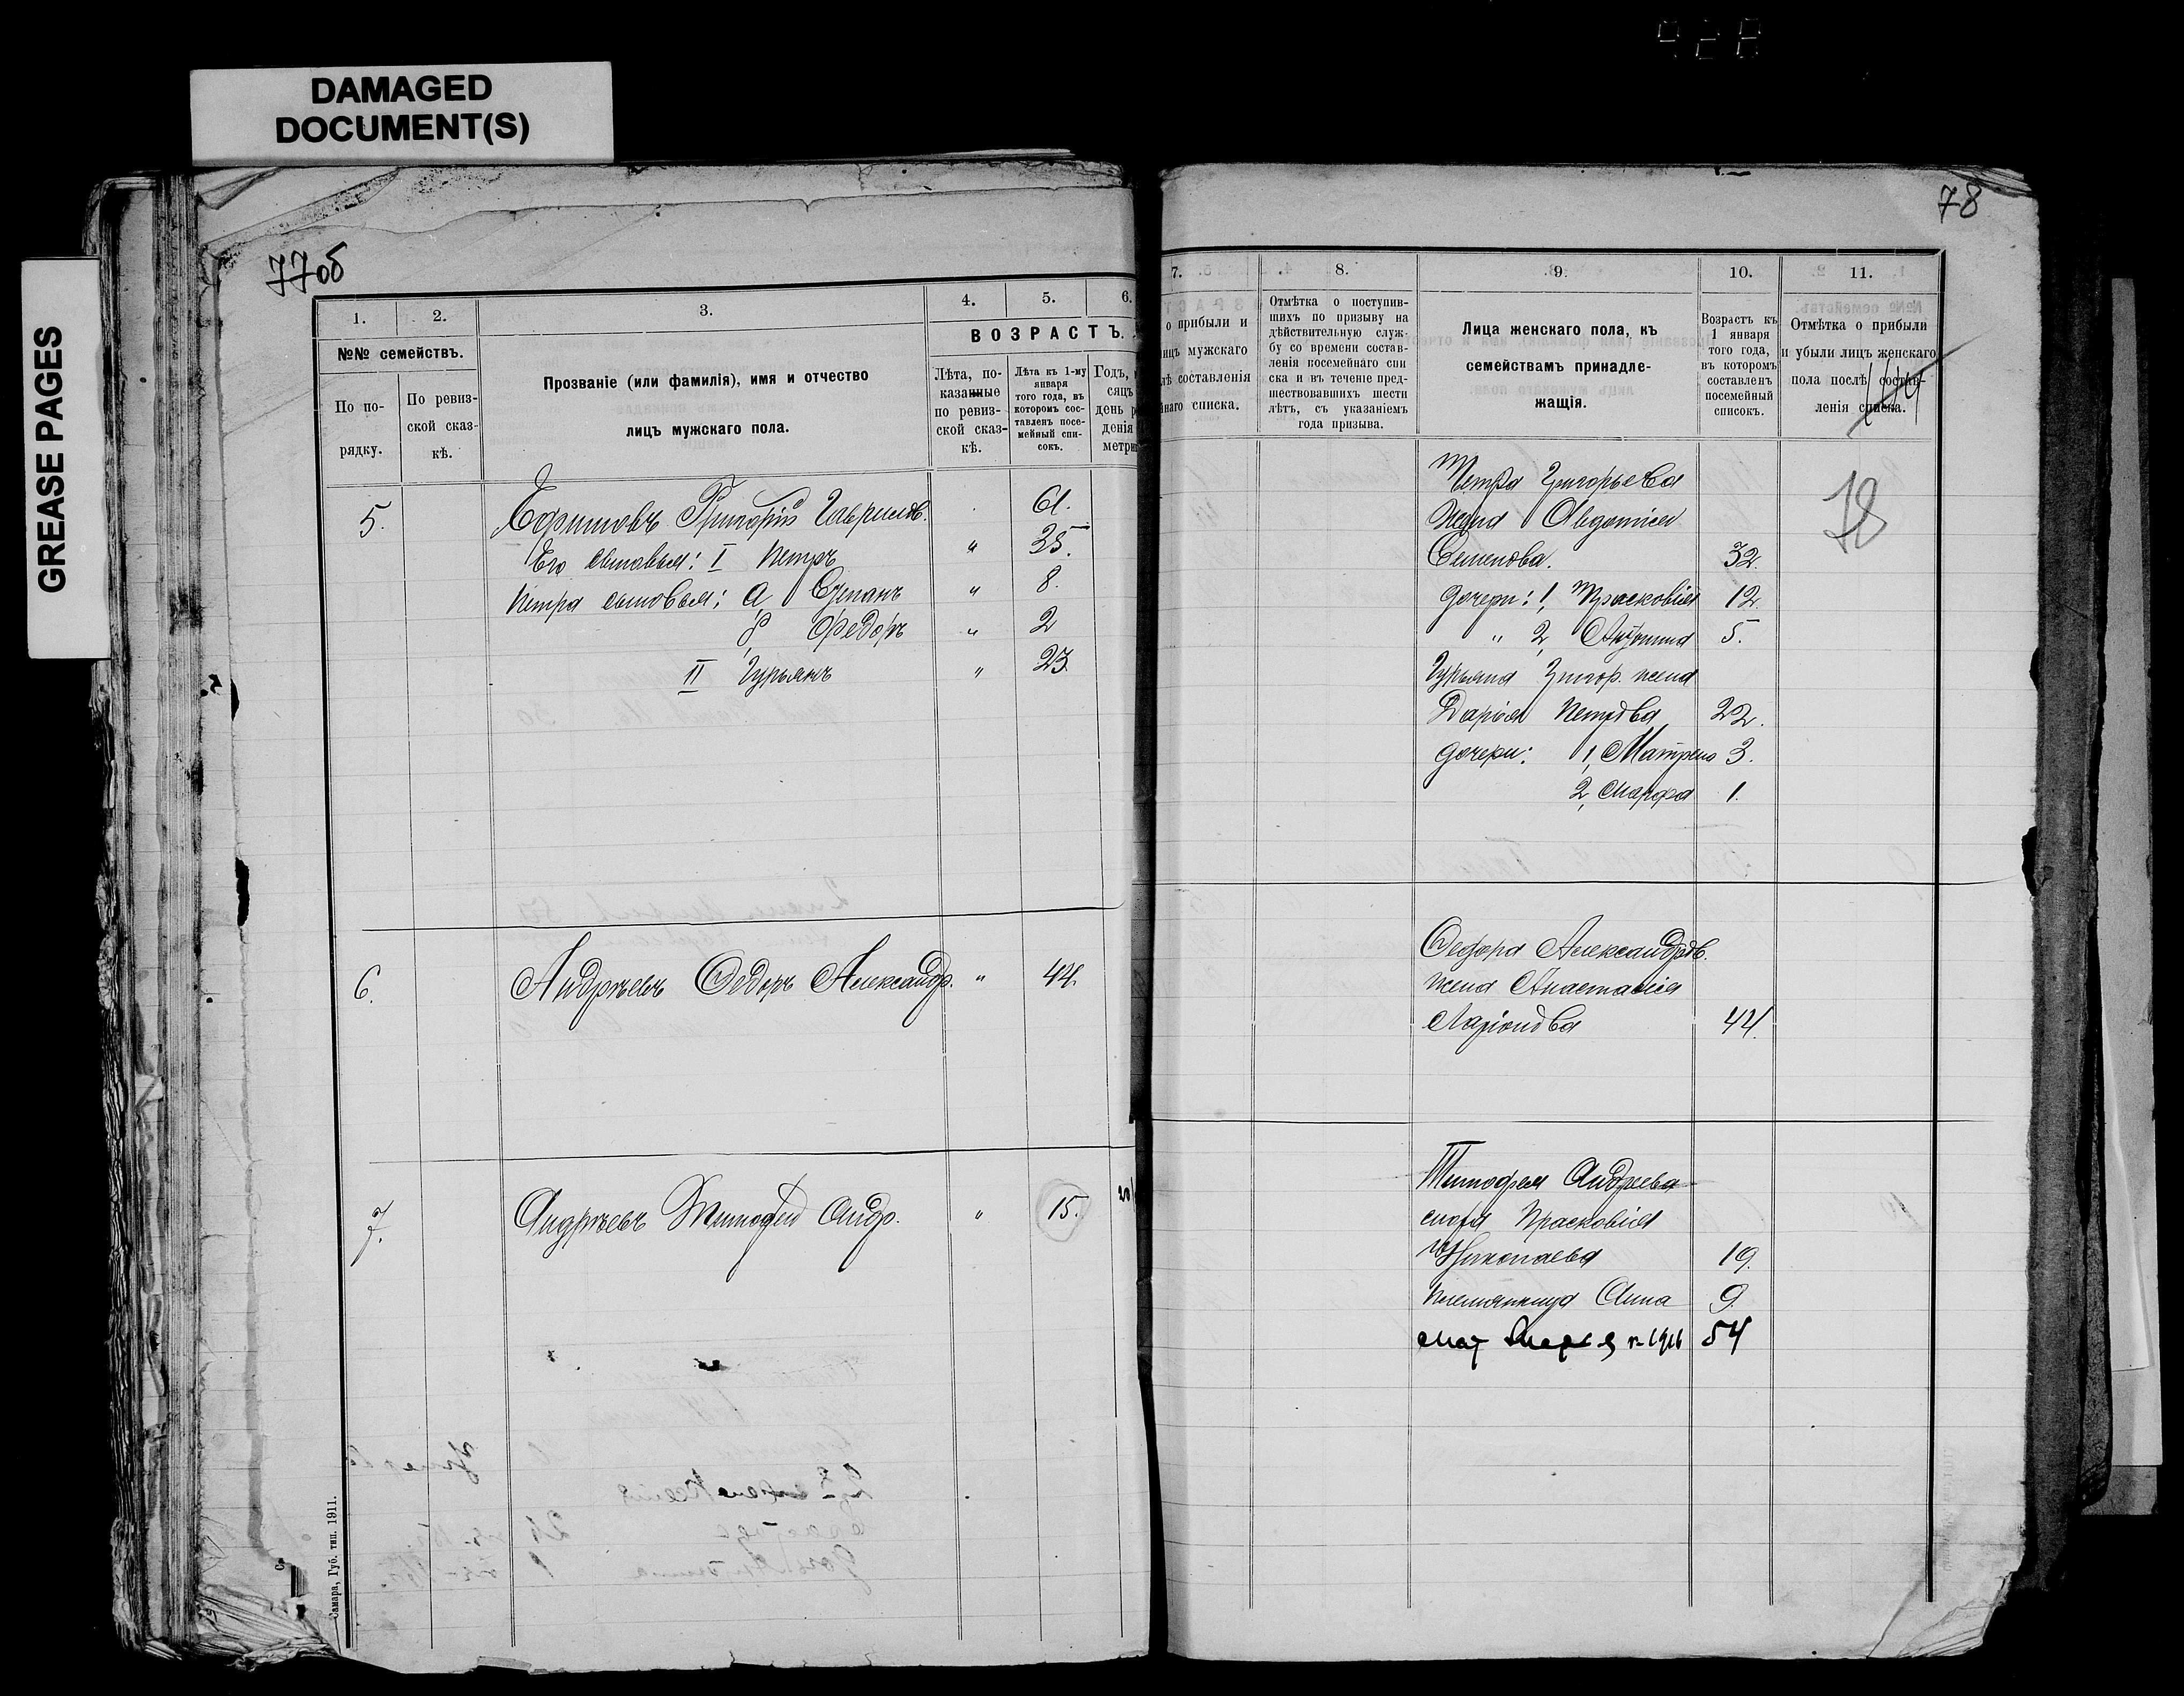 928
DAMAGED
DOCUMENT(S)
GREASE PAGES
77об
1.
2.
3.
4.
5.
6.
№№ семействъ.
По по-
рядку.
По ревиз-
ской сказ-
кѣ.
Прозваніе (или фамилія), имя и отчество
лицъ мужскаго пола.
ВОЗРАСТЪ.
Лѣта, по-
казанные
по ревиз-
ской сказ-
кѣ.
Лѣта къ 1-му
января
того года, въ
которомъ сос-
тавленъ посе-
мейный спи-
сокъ.
Годъ,
сяцъ
день р
денія
метри
5. Ефимовъ Григорій Гаврилов. 61.
Его сыновья: I Петръ " 35.
Петра сыновья: а, Степанъ " 8.
Федоръ " 2
II Гурьянъ " 23.
6. Андреевъ Федоръ Александр. " 44.
7. Андреевъ Тимофей Андр. " 15.
Самара, Губ. тип. 1911.
78
7.
8.
9.
10.
11.
о прибыли и
ицъ мужского
лѣ составленія
йнаго списка.
Отмѣтка о поступив-
шихъ по призыву на
дѣйствительную служ-
бу со времени состав-
ленія посемейнаго спи
ска и въ теченіе пред-
шествовавшихъ шести
лѣтъ, съ указаніемъ
года призыва.
Лица женскаго пола, къ
семействамъ принадле-
жащія.
Возрастъ къ
1 января
того года,
въ которомъ
составленъ
посемейный
списокъ.
Отмѣтка о прибыли
и убыли лицъ женскаго
пола послѣ состав-
ленія списка.
78
Петра Григорьева
жена Авдотья
Семенова. 32.
дочери: 1, Прасковія 12.
" 2, 5.
Гурьяна Григор. жена
Дарья Петрова 22.
дочери: 1, Матрена 3.
2, Марфа 1.
Федора Александров.
жена Анастасія
Ларіонова 44.
Тимофея Андреева
сноха Прасковія
Николаева 19.
племянница Анна 9.
мат 54